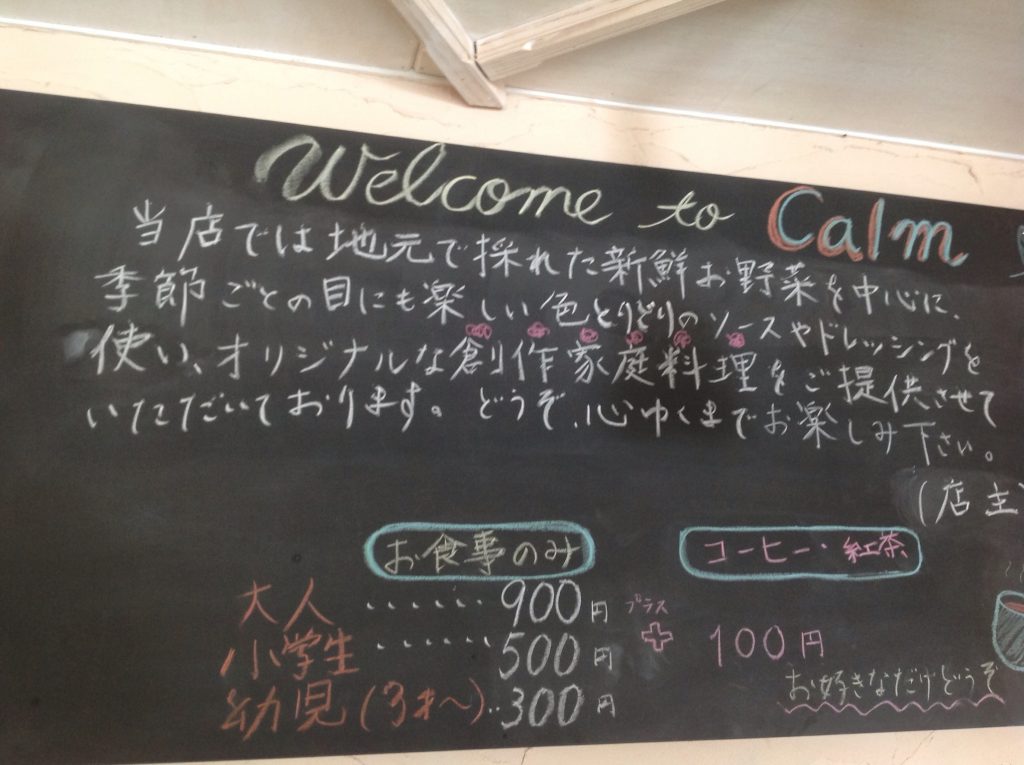 Welcome to Calm
当店では地元で採れた新鮮お野菜を中心に、
季節ごとの目にも楽しい色とりどりのソースやドレッシングを
使い、オリジナルな創作家庭料理をご提供させて
いただいております。どうぞ、心ゆくまでお楽しみ下さい。
(店主)
お食事のみ
コーヒー・紅茶
大人 ‥‥‥ 900円
小学生 ‥‥‥ 500円
幼児(3才〜)‥300円
プラス
+
100円
お好きなだけどうぞ